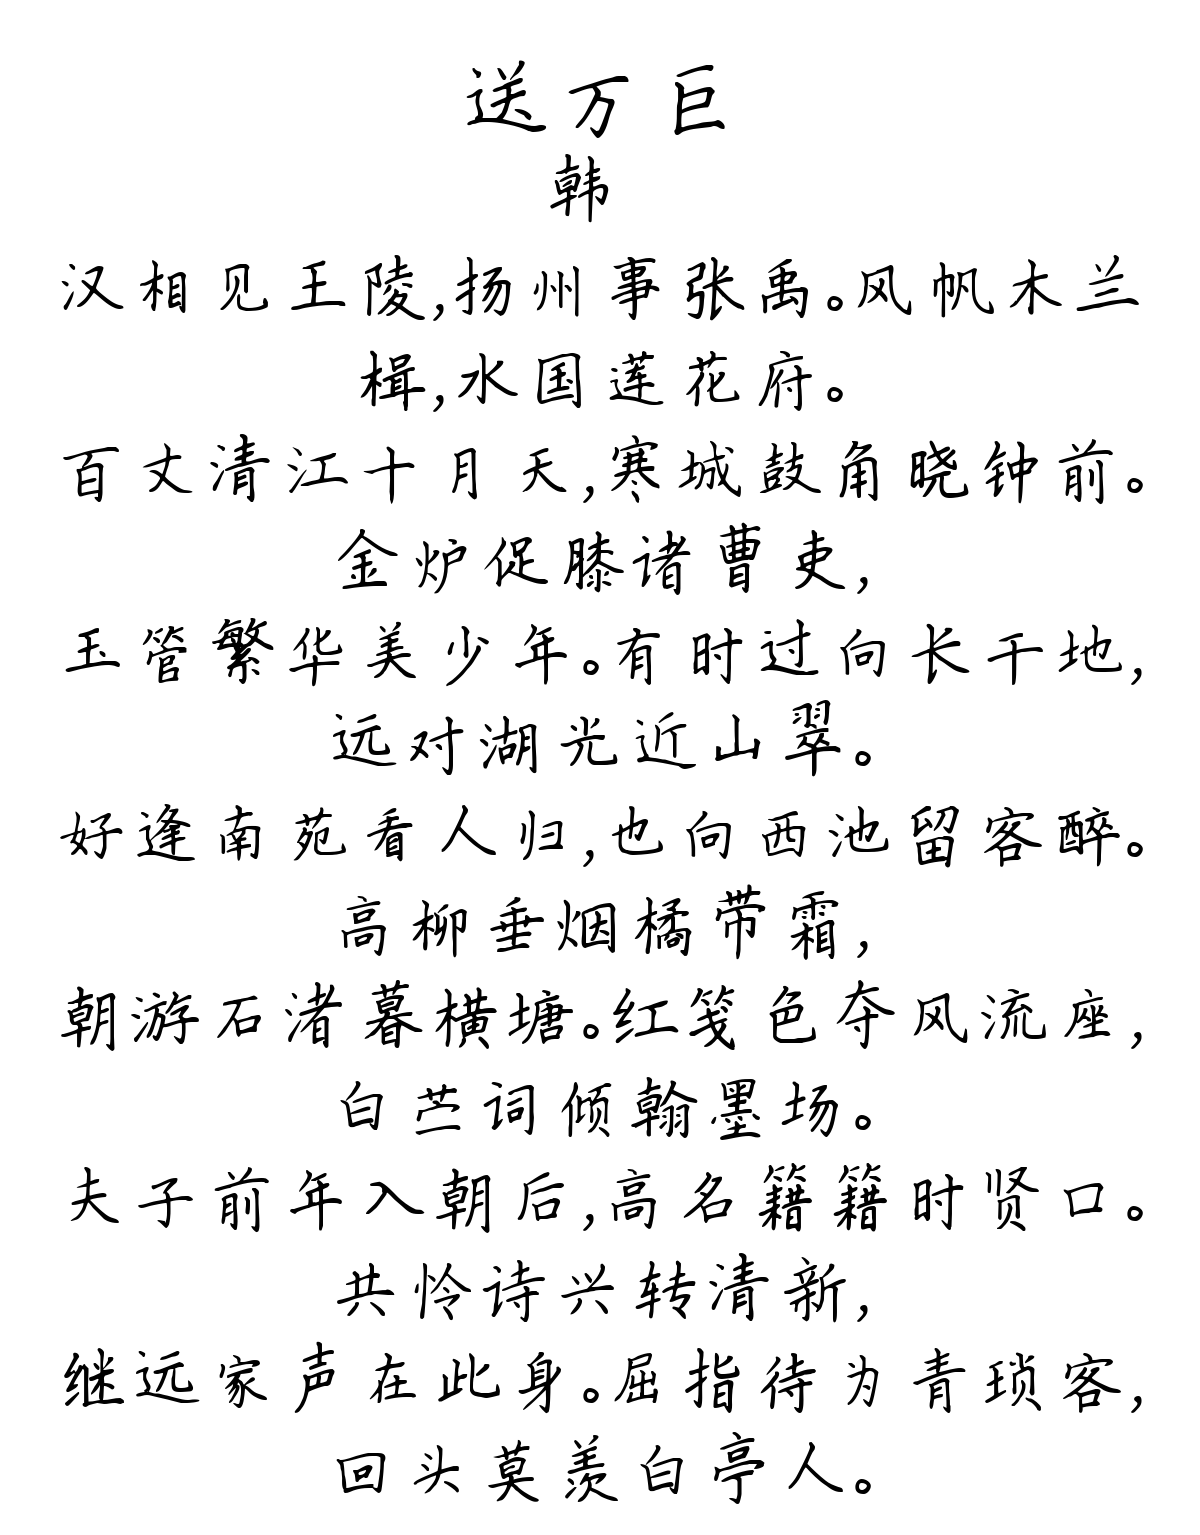 送万巨
韩
汉相见王陵,扬州事张禹。风帆木兰
楫,水国莲花府。
百丈清江十月天,寒城鼓角晓钟前。
金炉促膝诸曹吏,
玉管繁华美少年。有时过向长干地,
远对湖光近山翠。
好逢南苑看人归,也向西池留客醉。
高柳垂烟橘带霜,
朝游石渚暮横塘。红笺色夺风流座,
白苎词倾翰墨场。
夫子前年入朝后,高名籍籍时贤口。
共怜诗兴转清新,
继远家声在此身。屈指待为青琐客,
回头莫羡白亭人。